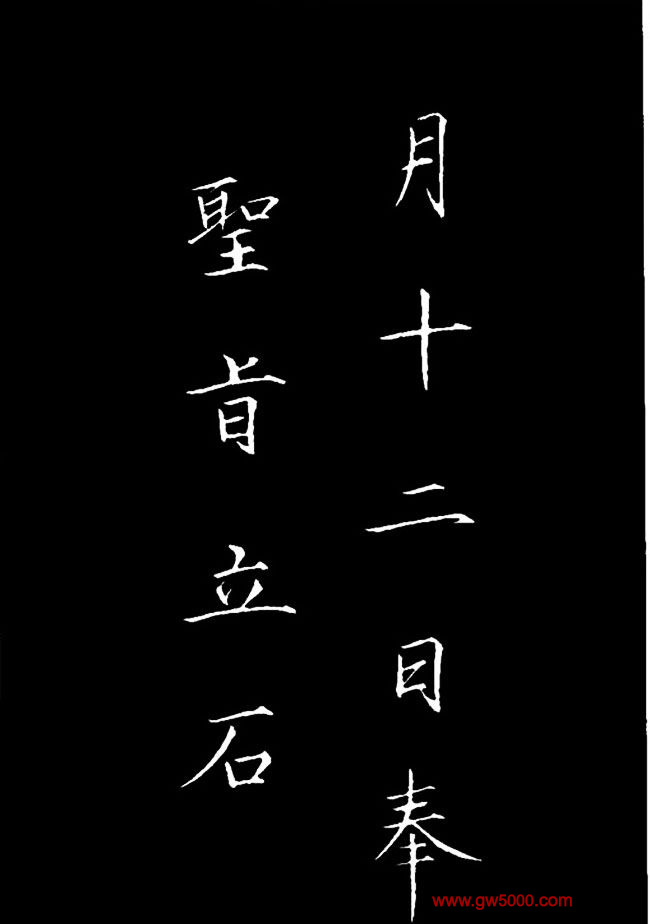 月十二日奉
聖旨立石
www.gw5000.com